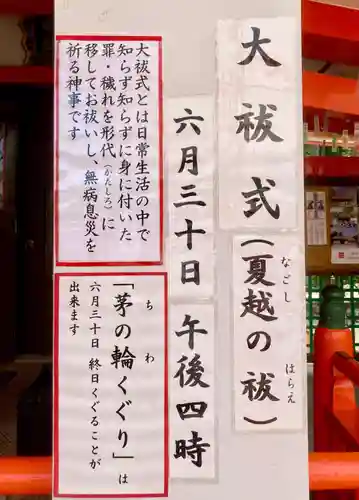 大祓式
（夏越の祓）
なごし
はらえ
六月三十日 午後四時
大祓式とは日常生活の中で
知らず知らずに身に付いた
罪・穢れを形代（かたしろ）に
移してお祓いし、無病息災を
祈る神事です
ちわ
「茅の輪くぐり」は
六月三十日 終日くぐることが
出来ます